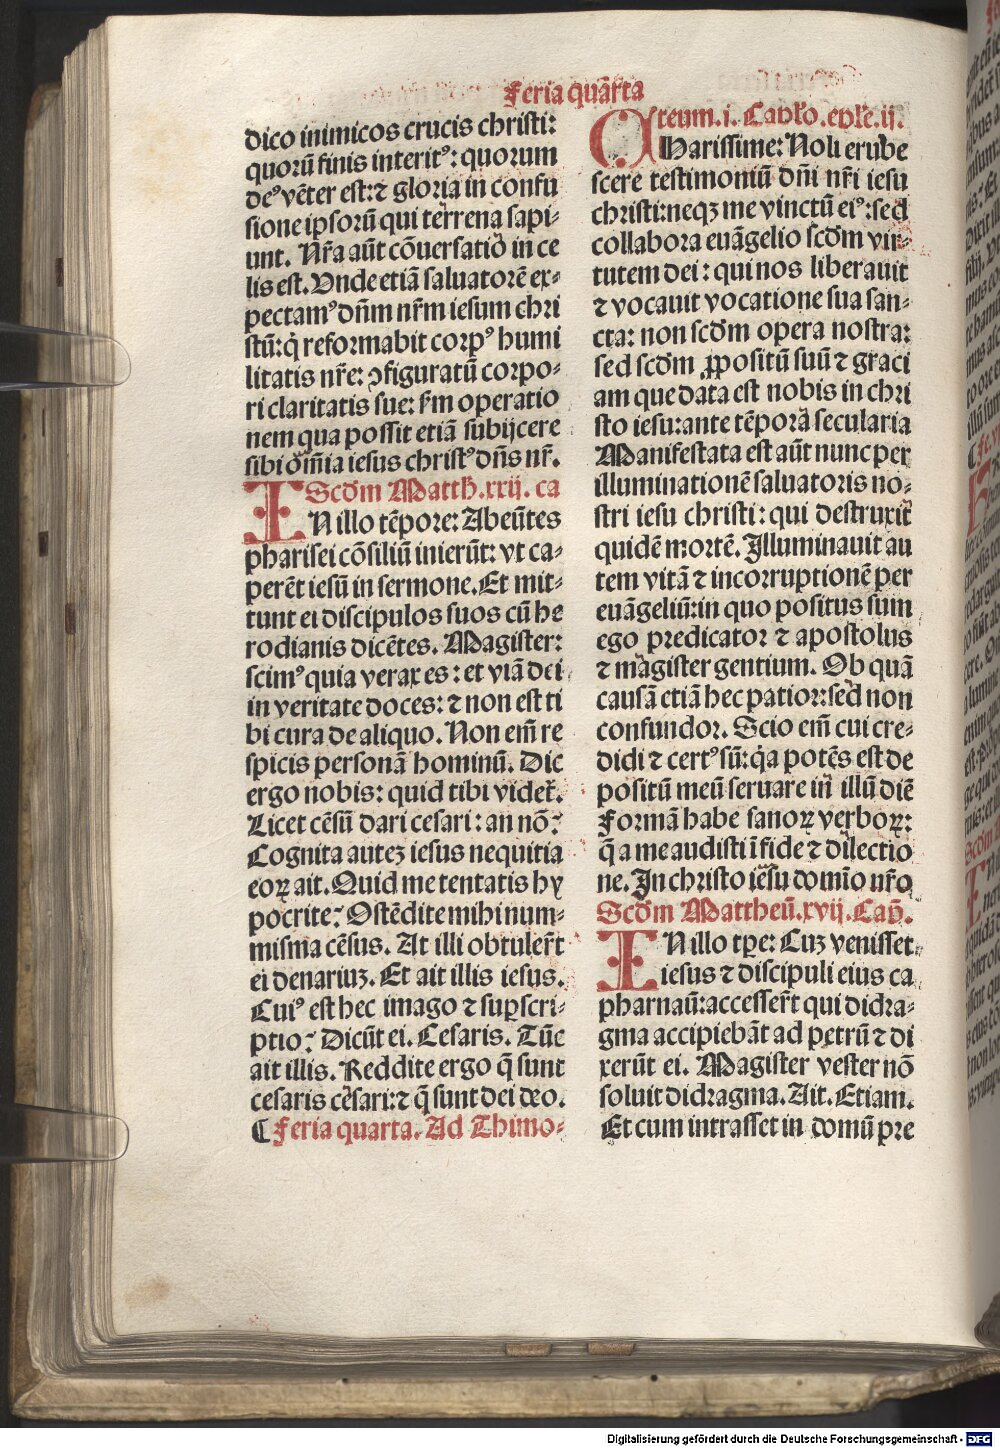 Feria quārta
dico inimicos crucis christi:
quorū finis interitꝰ: quorum
deꝰ vēter est: ⁊ gloria in confu
sione ipsorū qui terrena sapi⸗
unt. Nr̄a aūt cōuersatio in ce
lis est. Vnde etiā saluatorē ex⸗
pectamꝰ dn̄m nr̄m iesum chri
stū: q̇ reformabit corpꝰ humi
litatis nr̄e: ꝯfiguratū corpo⸗
ri claritatis sue: ẜm operatio
nem qua possit etiā subijcere
sibi om̄ia iesus christꝰ dn̄s nr̄.
Scdm̄ Matth. xxij. ca
IN illo tēpore: Abeūtes
pharisei cōsiliū inierūt: vt ca⸗
perēt iesū in sermone. Et mit⸗
tunt ei discipulos suos cū he
rodianis dicētes. Magister:
scimꝰ quia verax es: et viā dei
in veritate doces: ⁊ non est ti
bi cura de aliquo. Non em̄ re
spicis personā hominū. Dic
ergo nobis: quid tibi videt᷑.
Licet cēsū dari cesari: an nō?
Cognita autez iesus nequitia
eoꝝ ait. Quid me tentatis hy
pocrite? Ostēdite mihi num⸗
misma cēsus. At illi obtuler̄t
ei denariuz. Et ait illis iesus.
Cuiꝰ est hec imago ⁊ suꝑscri⸗
ptio? Dicūt ei. Cesaris. Tūc
ait illis. Reddite ergo q̄ sunt
cesaris cesari: ⁊ q̄ sunt dei deo.
⸿ Feria quarta. Ad Thimo⸗
teum. i. Capl'o. epl'e. ij.
CHarissime: Noli erube
scere testimoniū dn̄i nr̄i iesu
christi: neqꝫ me vinctū eiꝰ: sed
collabora euāgelio scdm̄ vir⸗
tutem dei: qui nos liberauit
⁊ vocauit vocatione sua san⸗
cta: non scdm̄ opera nostra:
sed scdm̄ ꝓpositū suū ⁊ graci
am que data est nobis in chri
sto iesu: ante tēpora secularia
Manifestata est aūt nunc per
illuminationē saluatoris no⸗
stri iesu christi: qui destruxit
quidē mortē. Illuminauit au
tem vitā ⁊ incorruptionē per
euāgeliū: in quo positus sum
ego predicator ⁊ apostolus
⁊ magister gentium. Ob quā
causā etiā hec patior: sed non
confundor. Scio em̄ cui cre⸗
didi ⁊ certꝰ sū: q̇a potēs est de
positū meū seruare in illū diē
Formā habe sanoꝝ verboꝝ:
q̄ a me audisti ī fide ⁊ dilectio
ne. In christo iesu domīo nr̄o
Scdm̄ Mattheū. xvij. Cap̄.
IN illo tꝑe: Cuz venisset
iesus ⁊ discipuli eius ca
pharnaū: accesser̄t qui didra⸗
gma accipiebāt ad petrū ⁊ di
xerūt ei. Magister vester nō
soluit didragma. Ait. Etiam.
Et cum intrasset in domū pre
Digitalisierung gefördert durch die Deutsche Forschungsgemeinschaft - DFG